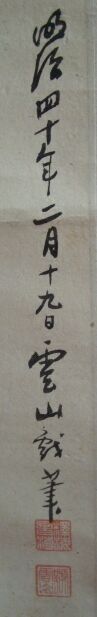 明治四十年二月十九日雲山戯筆